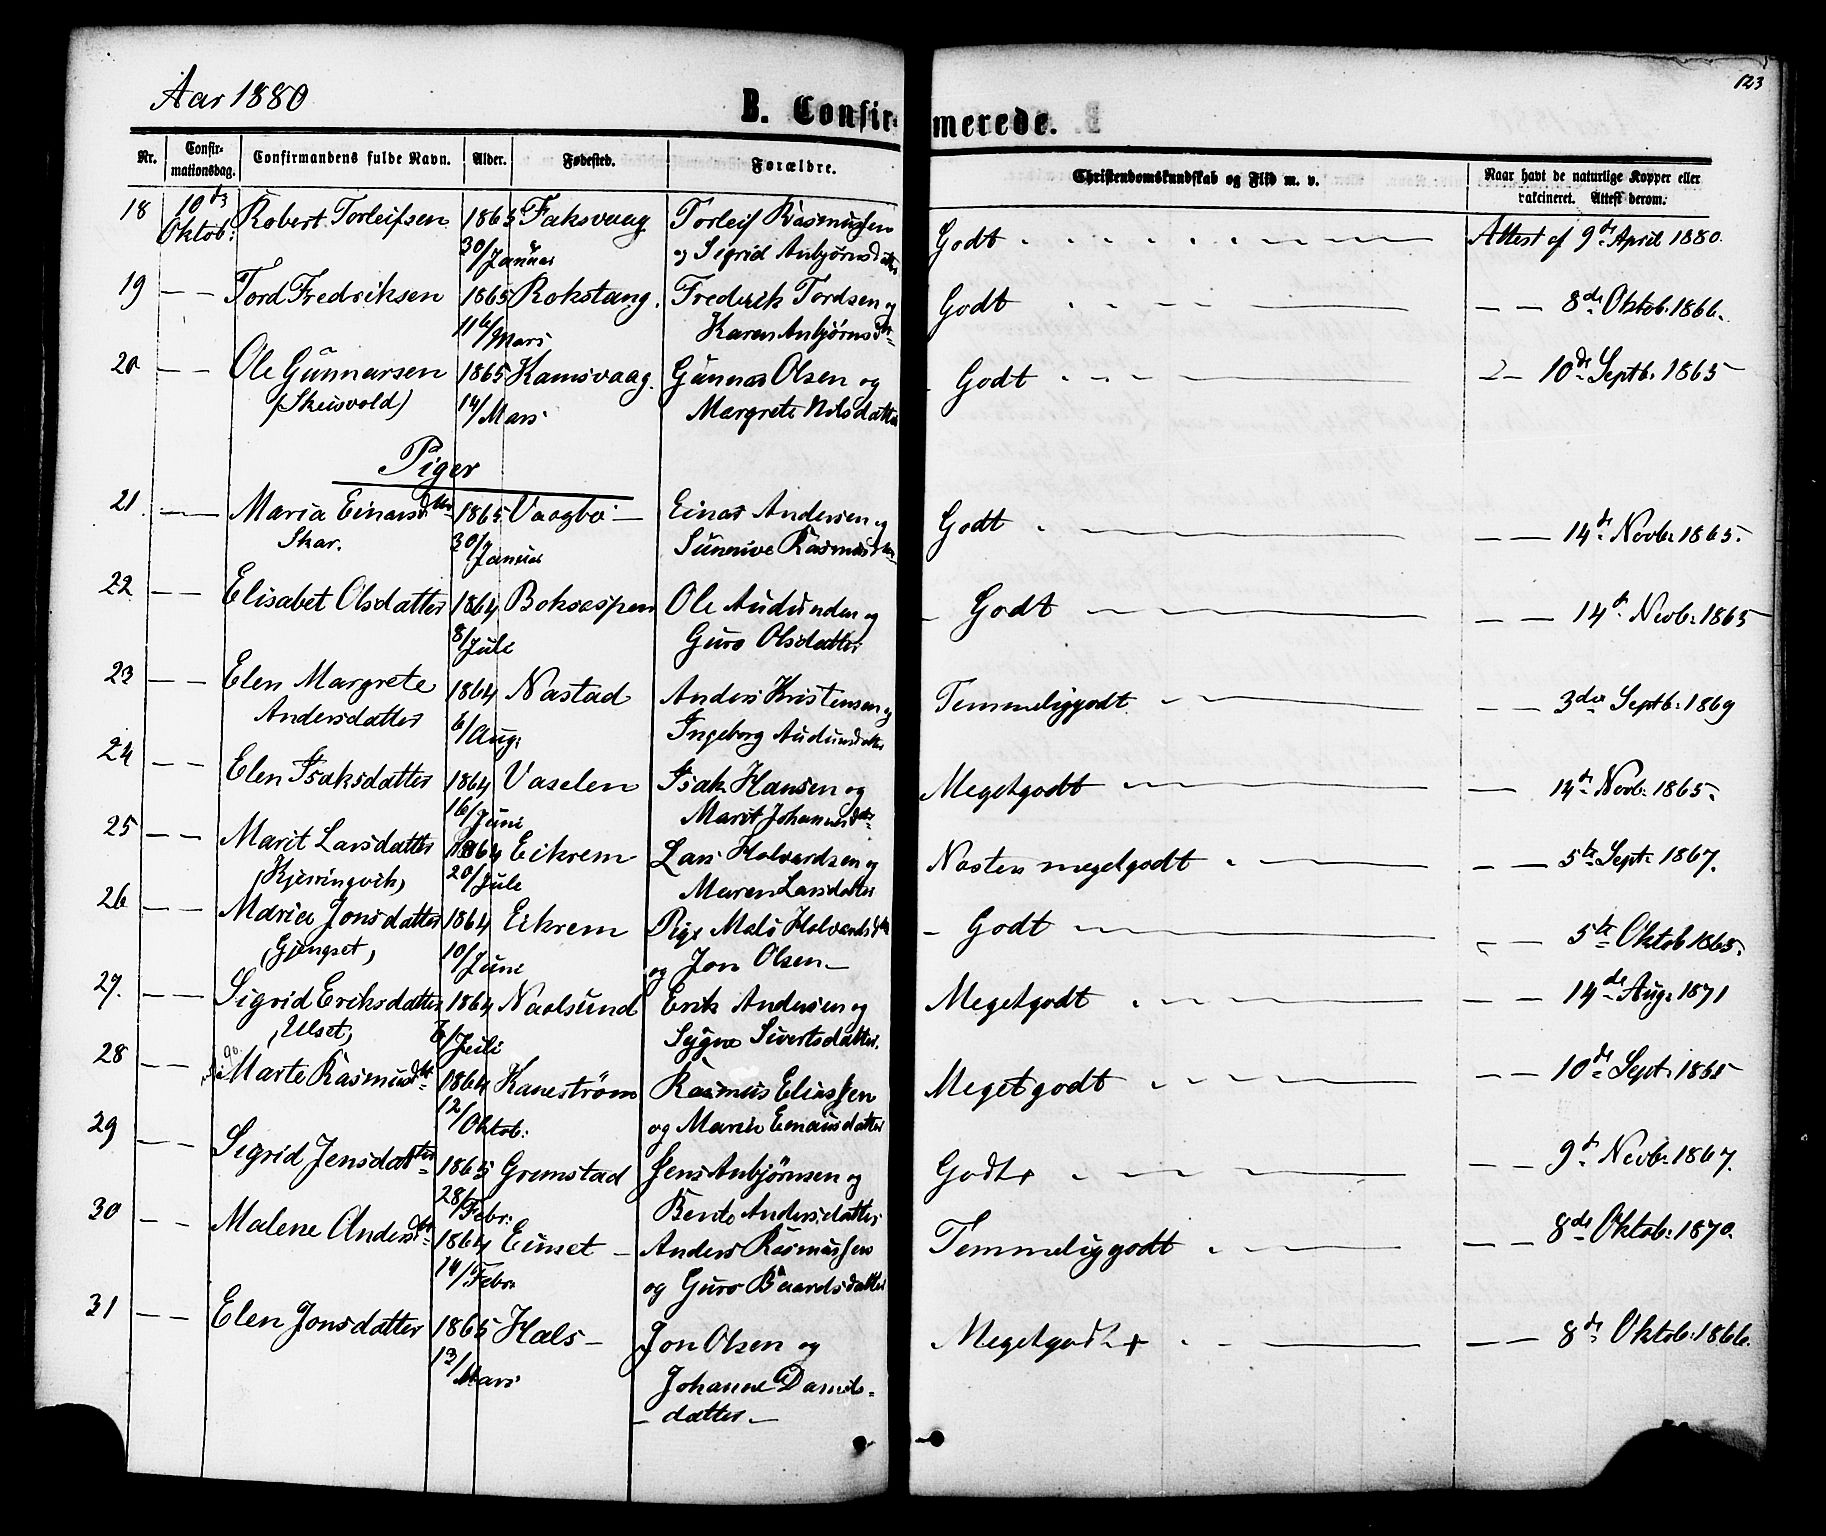 Aar 1880
123
B. Confirmerede.
Nr. Confirmationsdag. Confirmandens fulde Navn. Alder. Fødested. Forældre. Christendomskundskab og Flid m. v. Naar havt de naturlige Kopper eller vakcineret. Attest derom.
18 10de Robert Torleifsen 1865 Faksvaag Torleif Rasmussen Godt Attest af 9de April 1880.
Oktob: 30/Januar og Sigrid Anbjørnsdatter
19 — — Tord Fredriksen 1865 Rokstang. Frederik Tordsen og Godt — — 8de Oktob. 1866.
11/Mars Karen Anbjørnsdtr
20 — — Ole Gunnarsen 1865 Kamsvaag. Gunnar Olsen og Godt — 10de Septb. 1865
(Skeisvold) 14/Mars Margrete Nilsdatter
Piger
21 — — Maria Einarsdtr 1865 Vaagbø — Einar Andersen og Godt — — 14de Novb. 1865.
Skar. 30/Januar Sunnive Rasmusdtr
22 — — Elisabet Olsdatter 1864 Boksaspen Ole Audunden og Godt — — 14de Novb. 1865
8/Juli Guro Olsdatter
23 — — Elen Margrete 1864 Nastad Anders Kristensen og Temmeliggodt. — — 3die Septb. 1869
Andersdatter 6/Aug: Ingeborg Audunsdatter
24 — — Elen Isaksdatter 1864 Vaselen Isak Hansen og Megetgodt — 14de Novb. 1865.
16/Juni Marit Johannesdatr
25 — — Marit Larsdatter 1864 Eikrem Lars Halvardsen og Næsten megetgodt — — 5te Sept: 1867.
(Kjerringvik) 20/Juli Maren Larsdatter
26 — — Maria Jonsdatter 1864 Eikrem Pige Malo Halvardsdtr Godt — 5te Oktob 1865.
(Gjengset) 10/Juni og Jon Olsen —
27. — — Sigrid Eriksdatter 1864 Naalsund Erik Andersen og Megetgodt — — 14de Aug: 1871
(Ulset) 7/Juli Sygne Sivertsdatter.
28 — — Marte Rasmusdtr 1864 Kanestrøm Rasmus Eliassen Megetgodt — — 10de Sept. 1865
12/Oktob: og Marie Einarsdatter
29 — — Sigrid Jensdatter 1865 Grimstad Jens Anbjörnsen og Godt+ — — 9de Novb. 1867.
28/Febr: Bente Andersdatter
30 — — Malene Andersdtr 1864 Eimset — Anders Rasmussen Temmeliggodt — — 8de Oktob: 1870.
14/Febr. og Guro Baardsdatter
31 — — Elen Jonsdatter 1865 Hals — Jon Olsen og Megetgodt + — — 8de Oktob: 1866.
13/Mars Johanne Daniels-
— datter. —